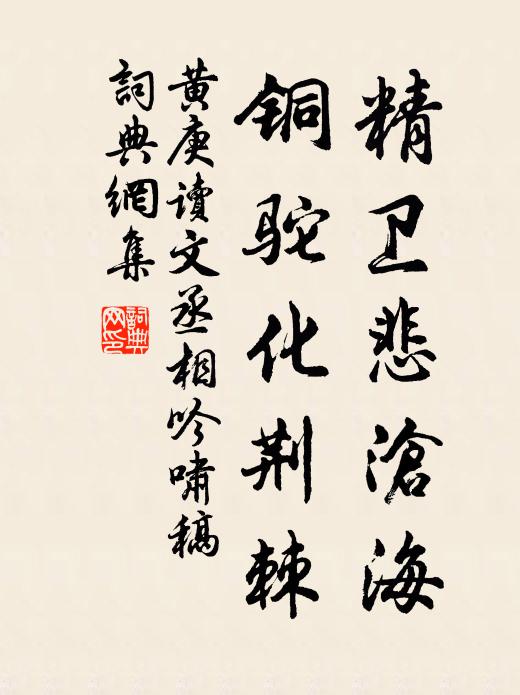 精卫悲滄海
铜驼化荆棘
黄庚读文丞相吟啸稿
詞典網集
詞典
网印